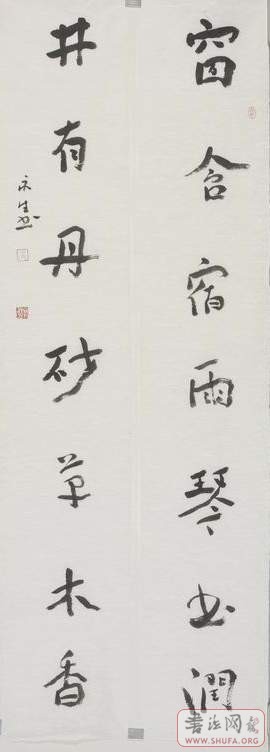 窗含宿雨琴书润
井有丹砂草木香
书法网
WWW.SHUFA.ORG